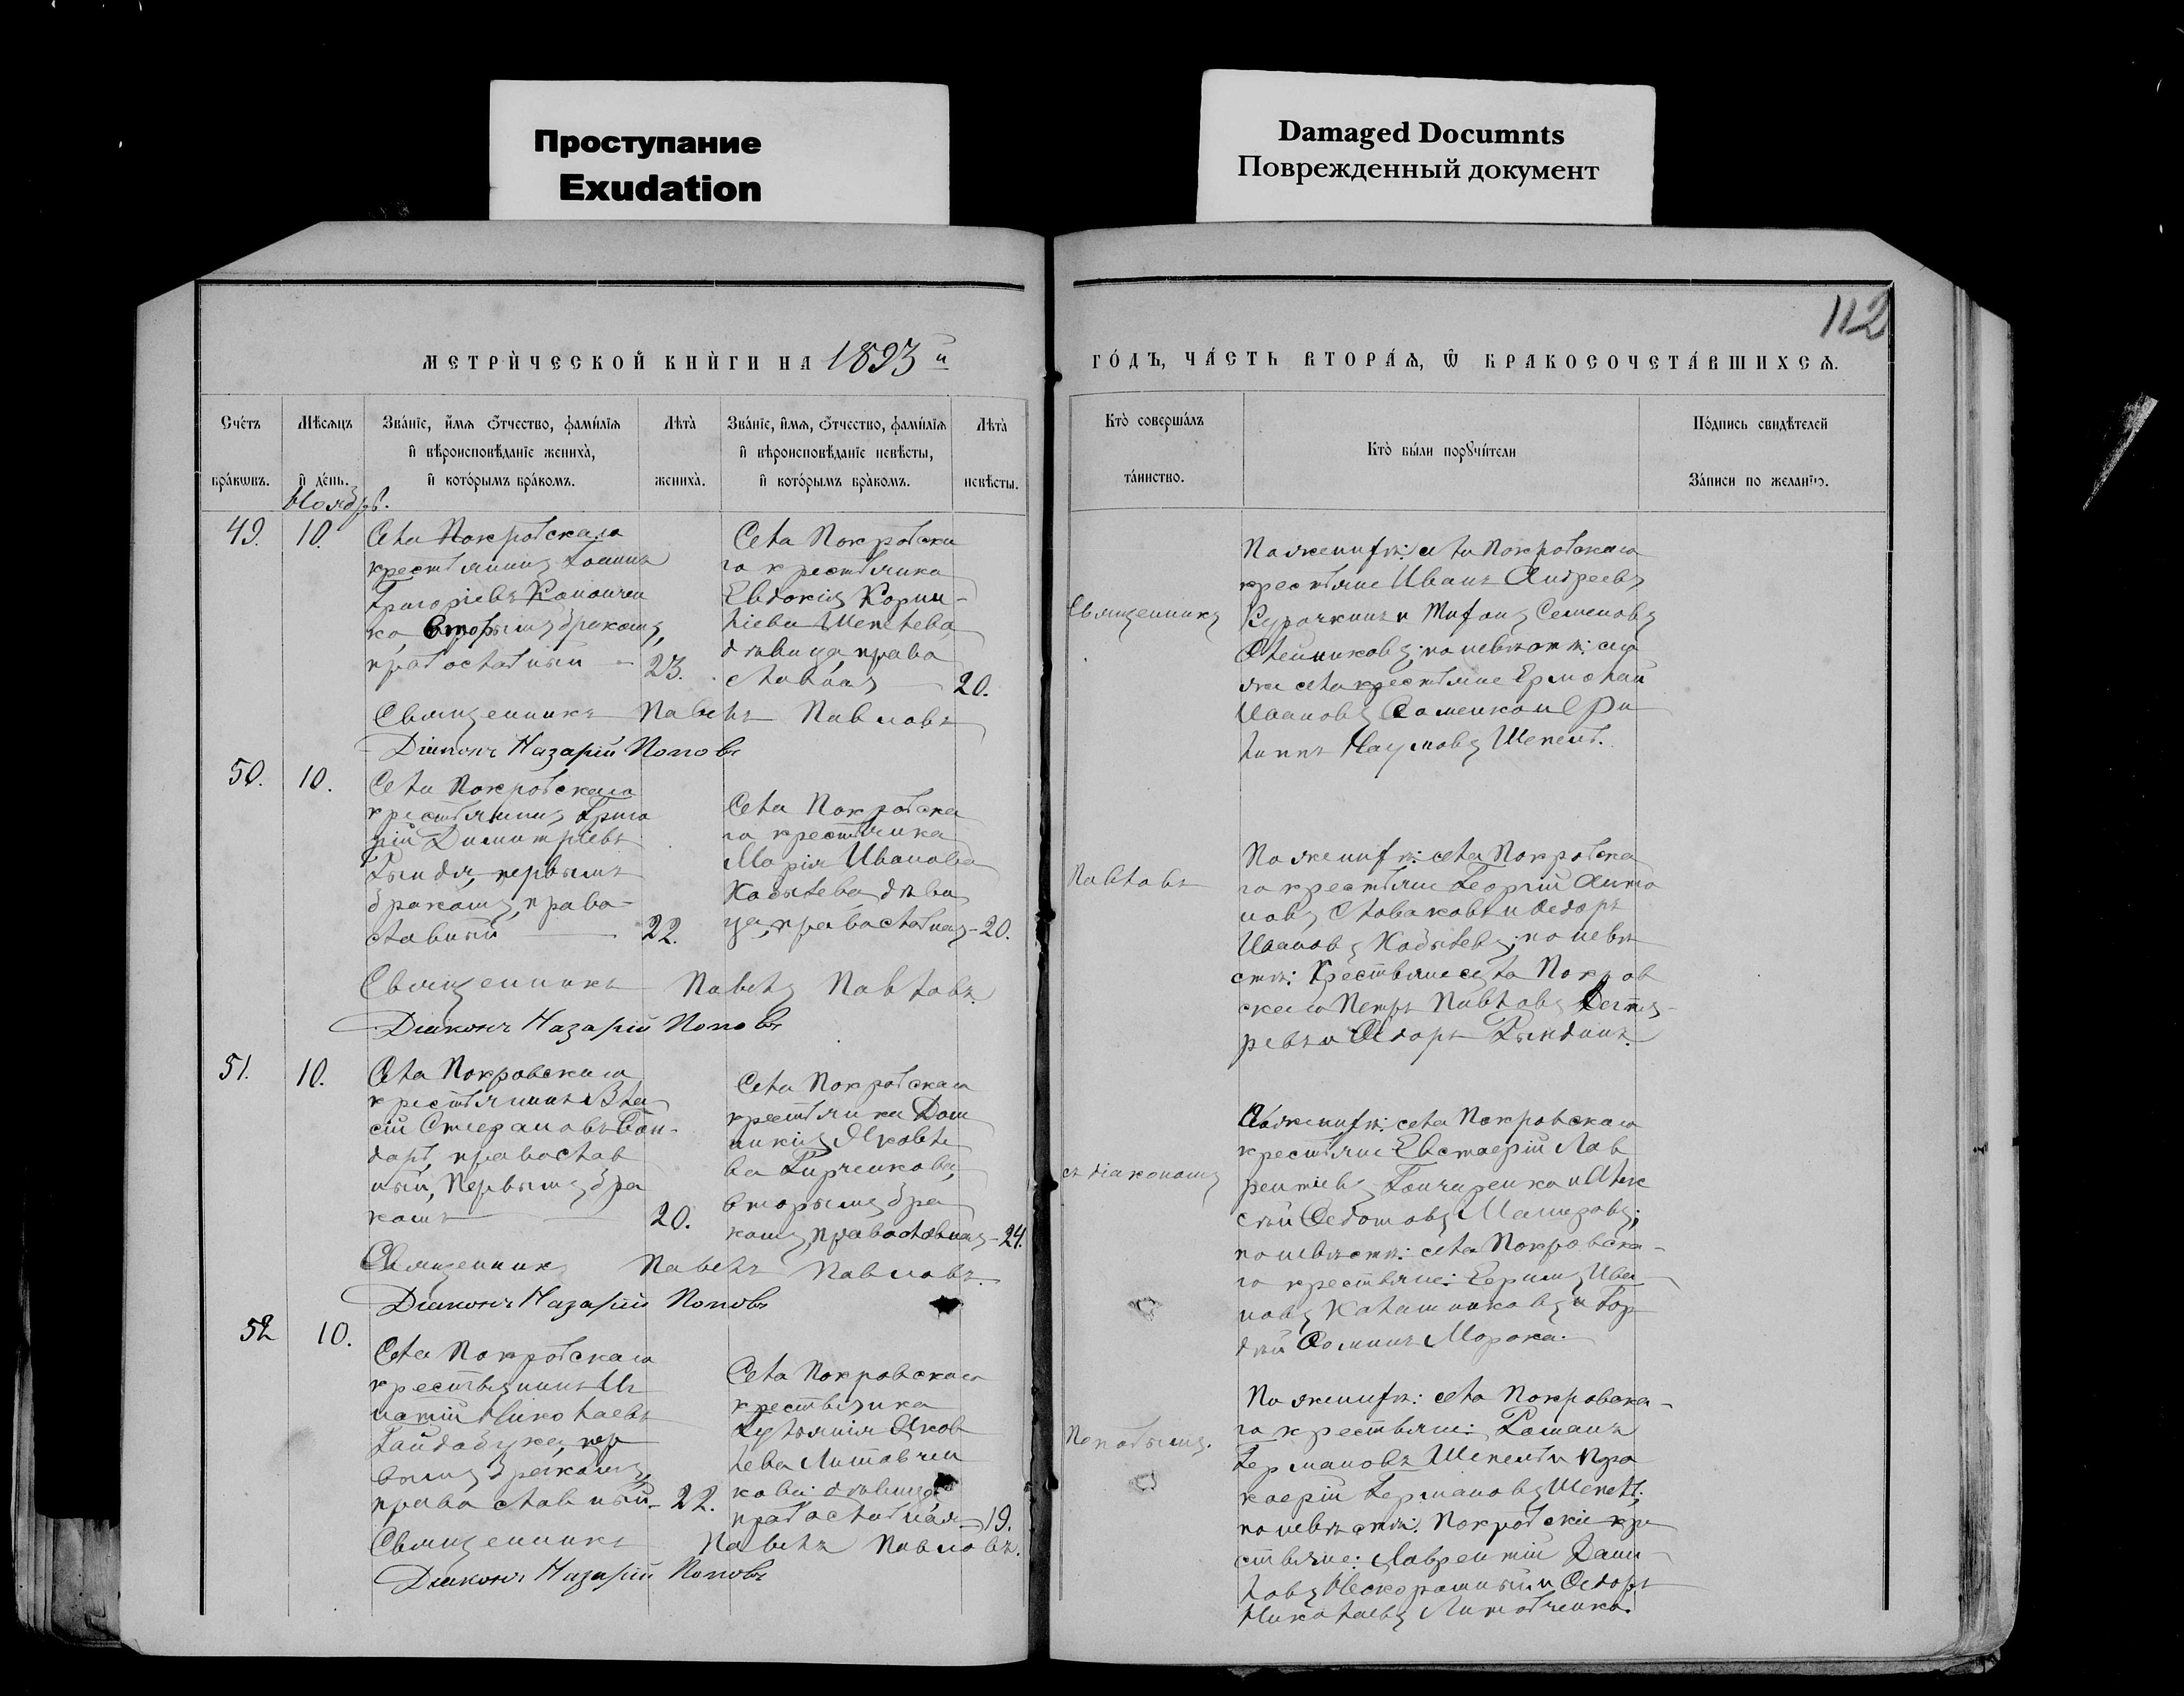 Проступание
Exudation
Damaged Documnts
Поврежденный документ
112
МЕТРИ́ЧЕСКОЙ КНИ́ГИ НА 1893 й
ГО́ДЪ, ЧА́СТЬ ВТОРА́Ѧ, Ѡ БРАКОСОЧЕТА́ВШИХСѦ.
Сче́тъ
бра́кωвъ.
Мѣ́сѧцъ
и҆ де́нь.
Зва́нїе, и҆́мѧ ѻ҆́тчество, фами́лїѧ
и҆ вѣроисповѣ́данїе жениха̀,
и҆ кото́рымъ бра́комъ.
Лѣ́та
жениха̀.
Зва́нїе, и҆́мѧ, ѻ҆́тчество, фами́лїѧ
и҆ вѣроисповѣ́данїе невѣ́сты,
и҆ кото́рымъ бра́комъ.
Лѣ́та
невѣ́сты.
Кто̀ соверша́лъ
та́инство.
Кто̀ бы́ли порꙋчи́тели
По́дпись свидѣ́телей
За́писи по желанїю.
Ноябрь.
49.
10.
Села Покровскаго
крестьянинъ Іоаннъ
Григоріевъ Конончен
ко, вторымъ бракомъ,
православный –
23.
Села Покровска
го крестьянка
Евдокія Корни-
ліева Шепелева,
дѣвица, право
славная
20.
Священникъ Павелъ Павловъ
Діаконъ Назарій Поповъ
Священникъ
По женихѣ: села Покровскаго
крестьяне Иванъ Андреевъ
Курочкинъ и Тифонъ Семеновъ
Олейниковъ; по невѣстѣ: сего
же села крестьяне Ермолай
Ивановъ
Наумовъ
50.
10.
Села Покровскаго
крестьянинъ Григо
рій Димитріевъ
Рындя, первымъ
бракомъ, право-
славный
22.
Села Покровска
го крестьянка
Марія Иванова
Кобылева, дѣви
ца, православная
20.
Священникъ Павелъ Павловъ.
Діаконъ Назарій Поповъ
Павловъ
По женихѣ: села Покровска
го крестьяне Георгій Анто
новъ и Ѳедоръ
Ивановъ Кобылевъ; по невѣ
стѣ: Крестьяне села Покров
скаго Петръ Павловъ Дегтя-
ревъ и Ѳедоръ Рындинъ.
51.
10.
Села Покровскаго
крестьянинъ Вла
сій Стефановъ Бон-
дарь, православ
ный, первымъ бра
комъ
20.
Села Покровскаго
крестьянка Дом
никія Яковле
ва Кирченкова,
вторымъ бра
комъ, православная –
24.
Священникъ Павелъ Павловъ.
Діаконъ Назарій Поповъ
съ діакономъ
По женихѣ: села Покровскаго
крестьяне Евстафій Лав
рентіевъ Гончаренко и Алек
сѣй Ѳедотовъ
по невѣстѣ: села Покровска-
го крестьяне: Ефимъ Ива
новъ Калашниковъ и Гор
дѣй Ѳоминъ Морока.
52
10.
Села Покровскаго
крестьянинъ Иг
натій Николаевъ
Гайдабука, пер
вымъ бракомъ,
православный –
22.
Села Покровскаго
крестьянка
Іуліанія Яков
лева Литовчен
кова: дѣвица,
православная –
19.
Священникъ Павелъ Павловъ.
Діаконъ Назарій Поповъ
Поповымъ.
По женихѣ: села Покровска-
го крестьяне: Романъ
Германовъ и Про
кофій Германовъ
по невѣстѣ: Покровскіе кре
стьяне: Лаврентій Дани-
ловъ Нескоромный и Ѳедоръ
Николаевъ Литовченко.